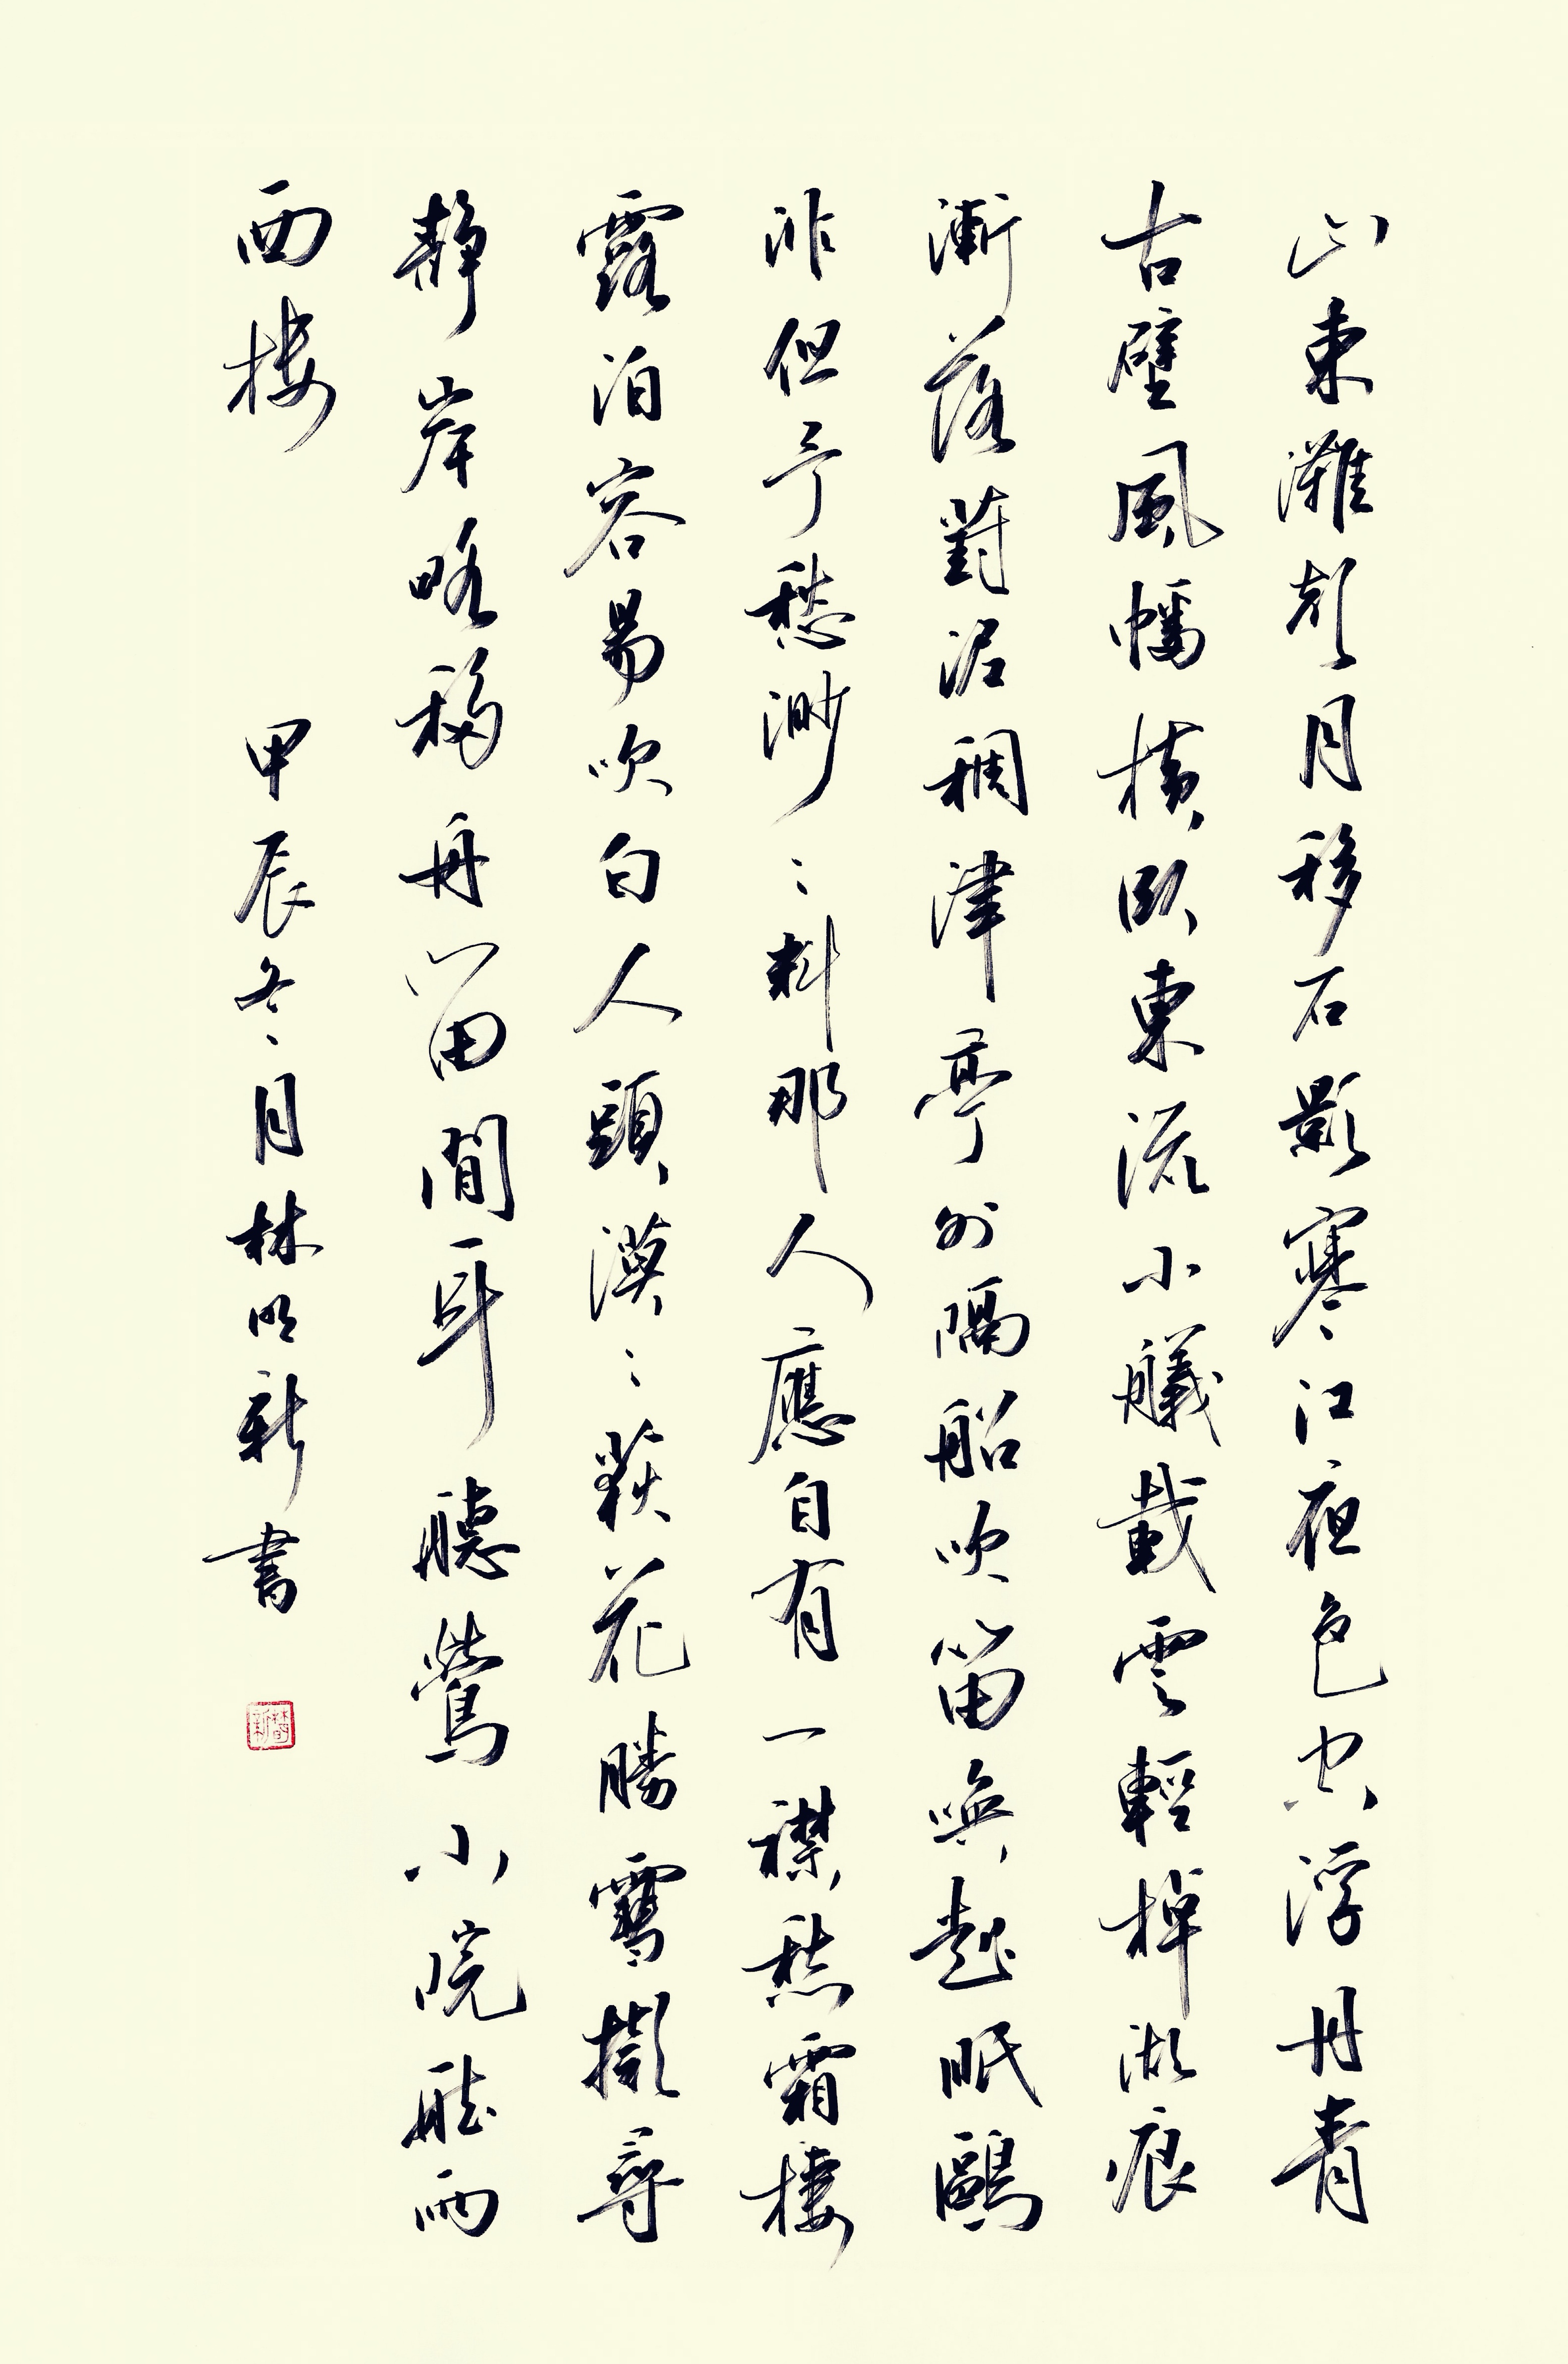 山束灘聲月移石影寒江夜色空浮丹青
古壁風幡橫臥東流小艤載雲輕棹湖痕
漸落葑泥稠津亭外隔船吹笛喚起眠鷗
非但予愁渺〻料那人應自有一襟愁霜棲
露泊容易吹白人頭漠〻荻花勝雪擬尋
靜岸略移舟留閒耳聽鶯小院聽雨
西樓 甲辰冬月林明新書